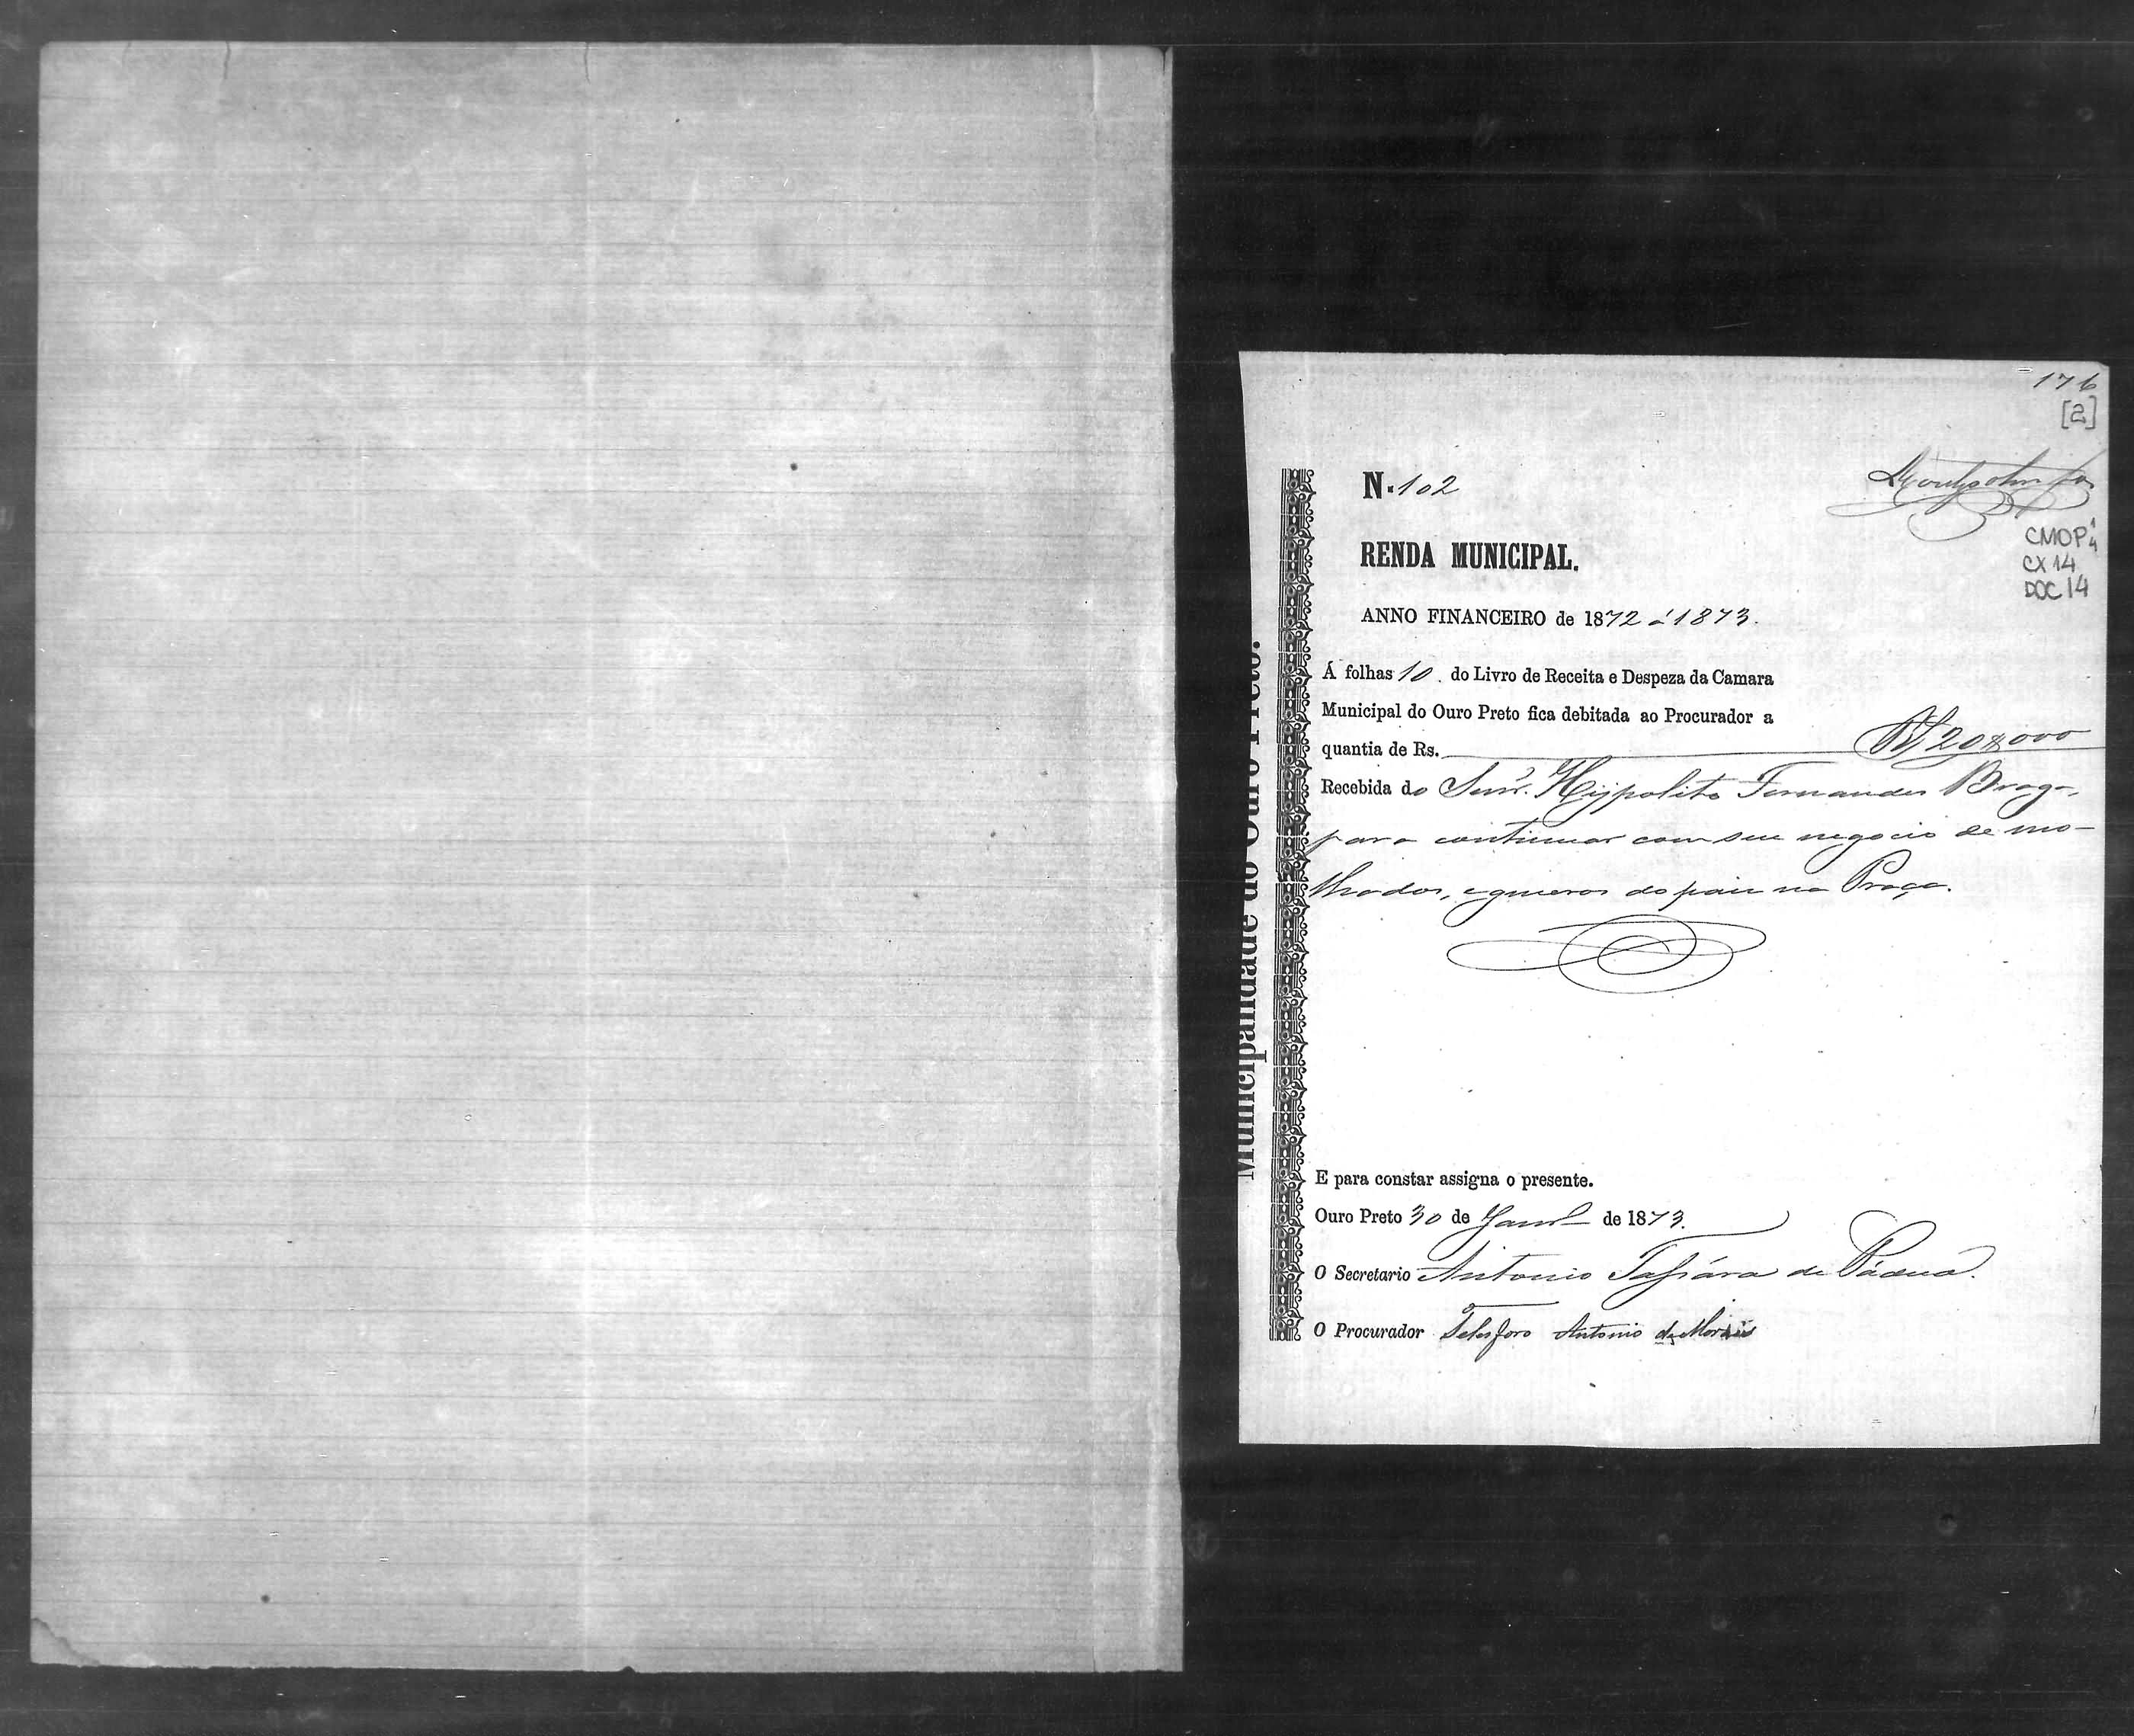 176
[2]
N. 102
CMOP 1/4
CX 14
DOC 14
RENDA MUNICIPAL.
ANNO FINANCEIRO de 1872 á 1873.
Á folhas 10. do Livro de Receita e Despeza da Camara
Municipal do Ouro Preto fica debitada ao Procurador a
quantia de Rs. 20$000
Recebida do Senr. Hypolito Fernandes Braga,
para continuar com seu negocio de mo-
lhados, e generos do paiz na Praça.
E para constar assigna o presente.
Ouro Preto 30 de Janrº de 1873.
O Secretario Antonio de Pádua.
O Procurador Telesforo Antonio de Moraes
Municipalidade do Ouro Preto.